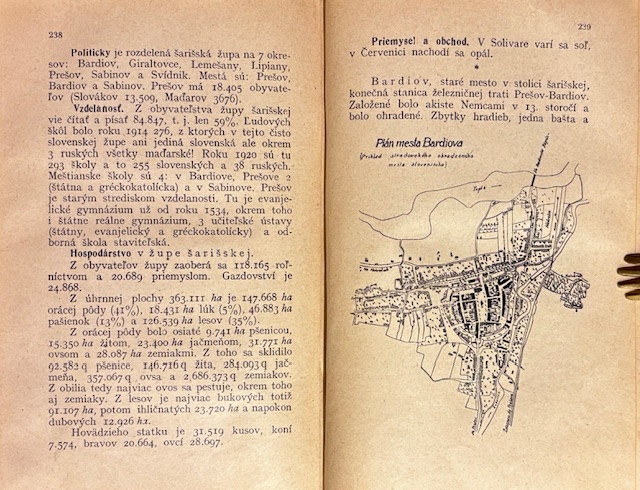 238
Politicky je rozdelená šarišská župa na 7 okre-
sov: Bardiov, Giraltovce, Lemešany, Lipiany,
Prešov, Sabinov a Svídnik. Mestá sú: Prešov,
Bardiov a Sabinov. Prešov má 18.405 obyvate-
ľov (Slovákov 13.509, Maďarov 3676).
Vzdelanosť. Z obyvateľstva župy šarišskej
vie čítať a písať 84.847, t. j. len 59%. Ľudových
škôl bolo roku 1914 276, z ktorých v tejto čisto
slovenskej župe ani jediná slovenská ale okrem
3 ruských všetky maďarské! Roku 1920 sú tu
293 školy a to 255 slovenských a 38 ruských.
Meštianske školy sú 4: v Bardiove, Prešove 2
(štátna a gréckokatolícka) a v Sabinove. Prešov
je starým strediskom vzdelanosti. Tu je evanje-
lické gymnázium už od roku 1534, okrem toho
i štátne reálne gymnázium, 3 učiteľské ústavy
(štátny, evanjelický a gréckokatolícky) a od-
borná škola staviteľská.
Hospodárstvo v župe šarišskej.
Z obyvateľov župy zaoberá sa 118.165 roľ-
níctvom a 20.689 priemyslom. Gazdovství je
24.868.
Z úhrnnej plochy 363.111 ha je 147.668 ha
orácej pôdy (41%), 18.431 ha lúk (5%), 46.883 ha
pašienok (13%) a 126.539 ha lesov (35%).
Z orácej pôdy bolo osiaté 9.741 ha pšenicou,
15.350 ha žitom, 23.400 ha jačmeňom, 31.771 ha
ovsom a 28.087 ha zemiakmi. Z toho sa sklidilo
92.582 q pšenice, 146.716 q žita, 284.093 q jač-
meňa, 357.067 q ovsa a 2,686.373 q zemiakov.
Z obilia tedy najviac ovos sa pestuje, okrem toho
aj zemiaky. Z lesov je najviac bukových totiž
91.107 ha, potom ihličnatých 23.720 ha a napokon
dubových 12.926 ha.
Hovädzieho statku je 31.519 kusov, koní
7.574, bravov 20.664, ovcí 28.697.
239
Priemysel a obchod. V Solivare varí sa soľ,
v Červenici nachodí sa opál.
*
Bardiov, staré mesto v stolici šarišskej,
konečná stanica železničnej trati Prešov-Bardiov.
Založené bolo akiste Nemcami v 13. storočí a
bolo ohradené. Zbytky hradieb, jedna bašta a
Plán mesta Bardiova
(Príklad stredovekého ohradeného
mesta slovenského)
Topľa